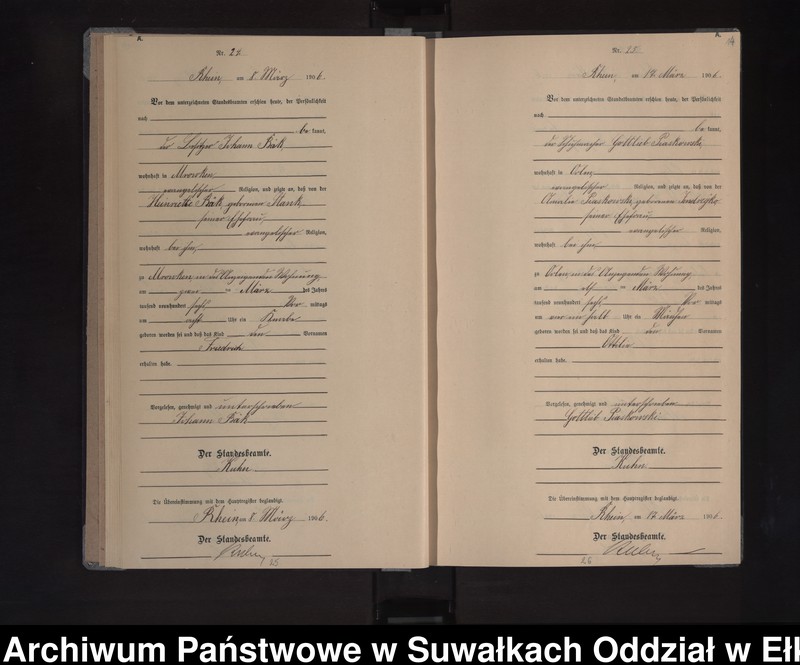 Nr. 24
Rhein, am 8. März 1906.
Vor dem unterzeichneten Standesbeamten erschien heute, der Persönlichkeit
nach
be kannt,
der Besitzer Johann Bäk
wohnhaft in Mrowken
evangelischer Religion, und zeigte an, daß von der
Henriette Bäk, geborenen
seiner Ehefrau,
evangelischer Religion,
wohnhaft bei ihm,
zu Mrowken in des Anzeigenden Wohnung
am ten März des Jahres
tausend neunhundert sechs Vor mittags
um acht Uhr ein Knabe
geboren worden sei und daß das Kind den Vornamen
Friedrich
erhalten habe.
Vorgelesen, genehmigt und unterschrieben
Johann Bäk
Der Standesbeamte.
Kuhn
Die Übereinstimmung mit dem Hauptregister beglaubigt.
Rhein, am 8. März 1906.
Der Standesbeamte.
25
Nr. 25
Rhein, am 12. März 1906.
Vor dem unterzeichneten Standesbeamten erschien heute, der Persönlichkeit
nach
be kannt,
der Gottlieb Piaskowski,
wohnhaft in
evangelischer Religion, und zeigte an, daß von der
Amalie Piaskowski, geborenen
seiner Ehefrau,
evangelischer Religion,
wohnhaft bei ihm,
zu in des Anzeigenden Wohnung
am ten März des Jahres
tausend neunhundert sechs Vor mittags
um ein halb Uhr ein Mädchen
geboren worden sei und daß das Kind den Vornamen
Ottilie
erhalten habe.
Vorgelesen, genehmigt und unterschrieben
Gottlieb Piaskowski
Der Standesbeamte.
Kuhn
Die Übereinstimmung mit dem Hauptregister beglaubigt.
Rhein, am 12. März 1906.
Der Standesbeamte.
26
Archiwum Państwowe w Suwałkach Oddział w Eł